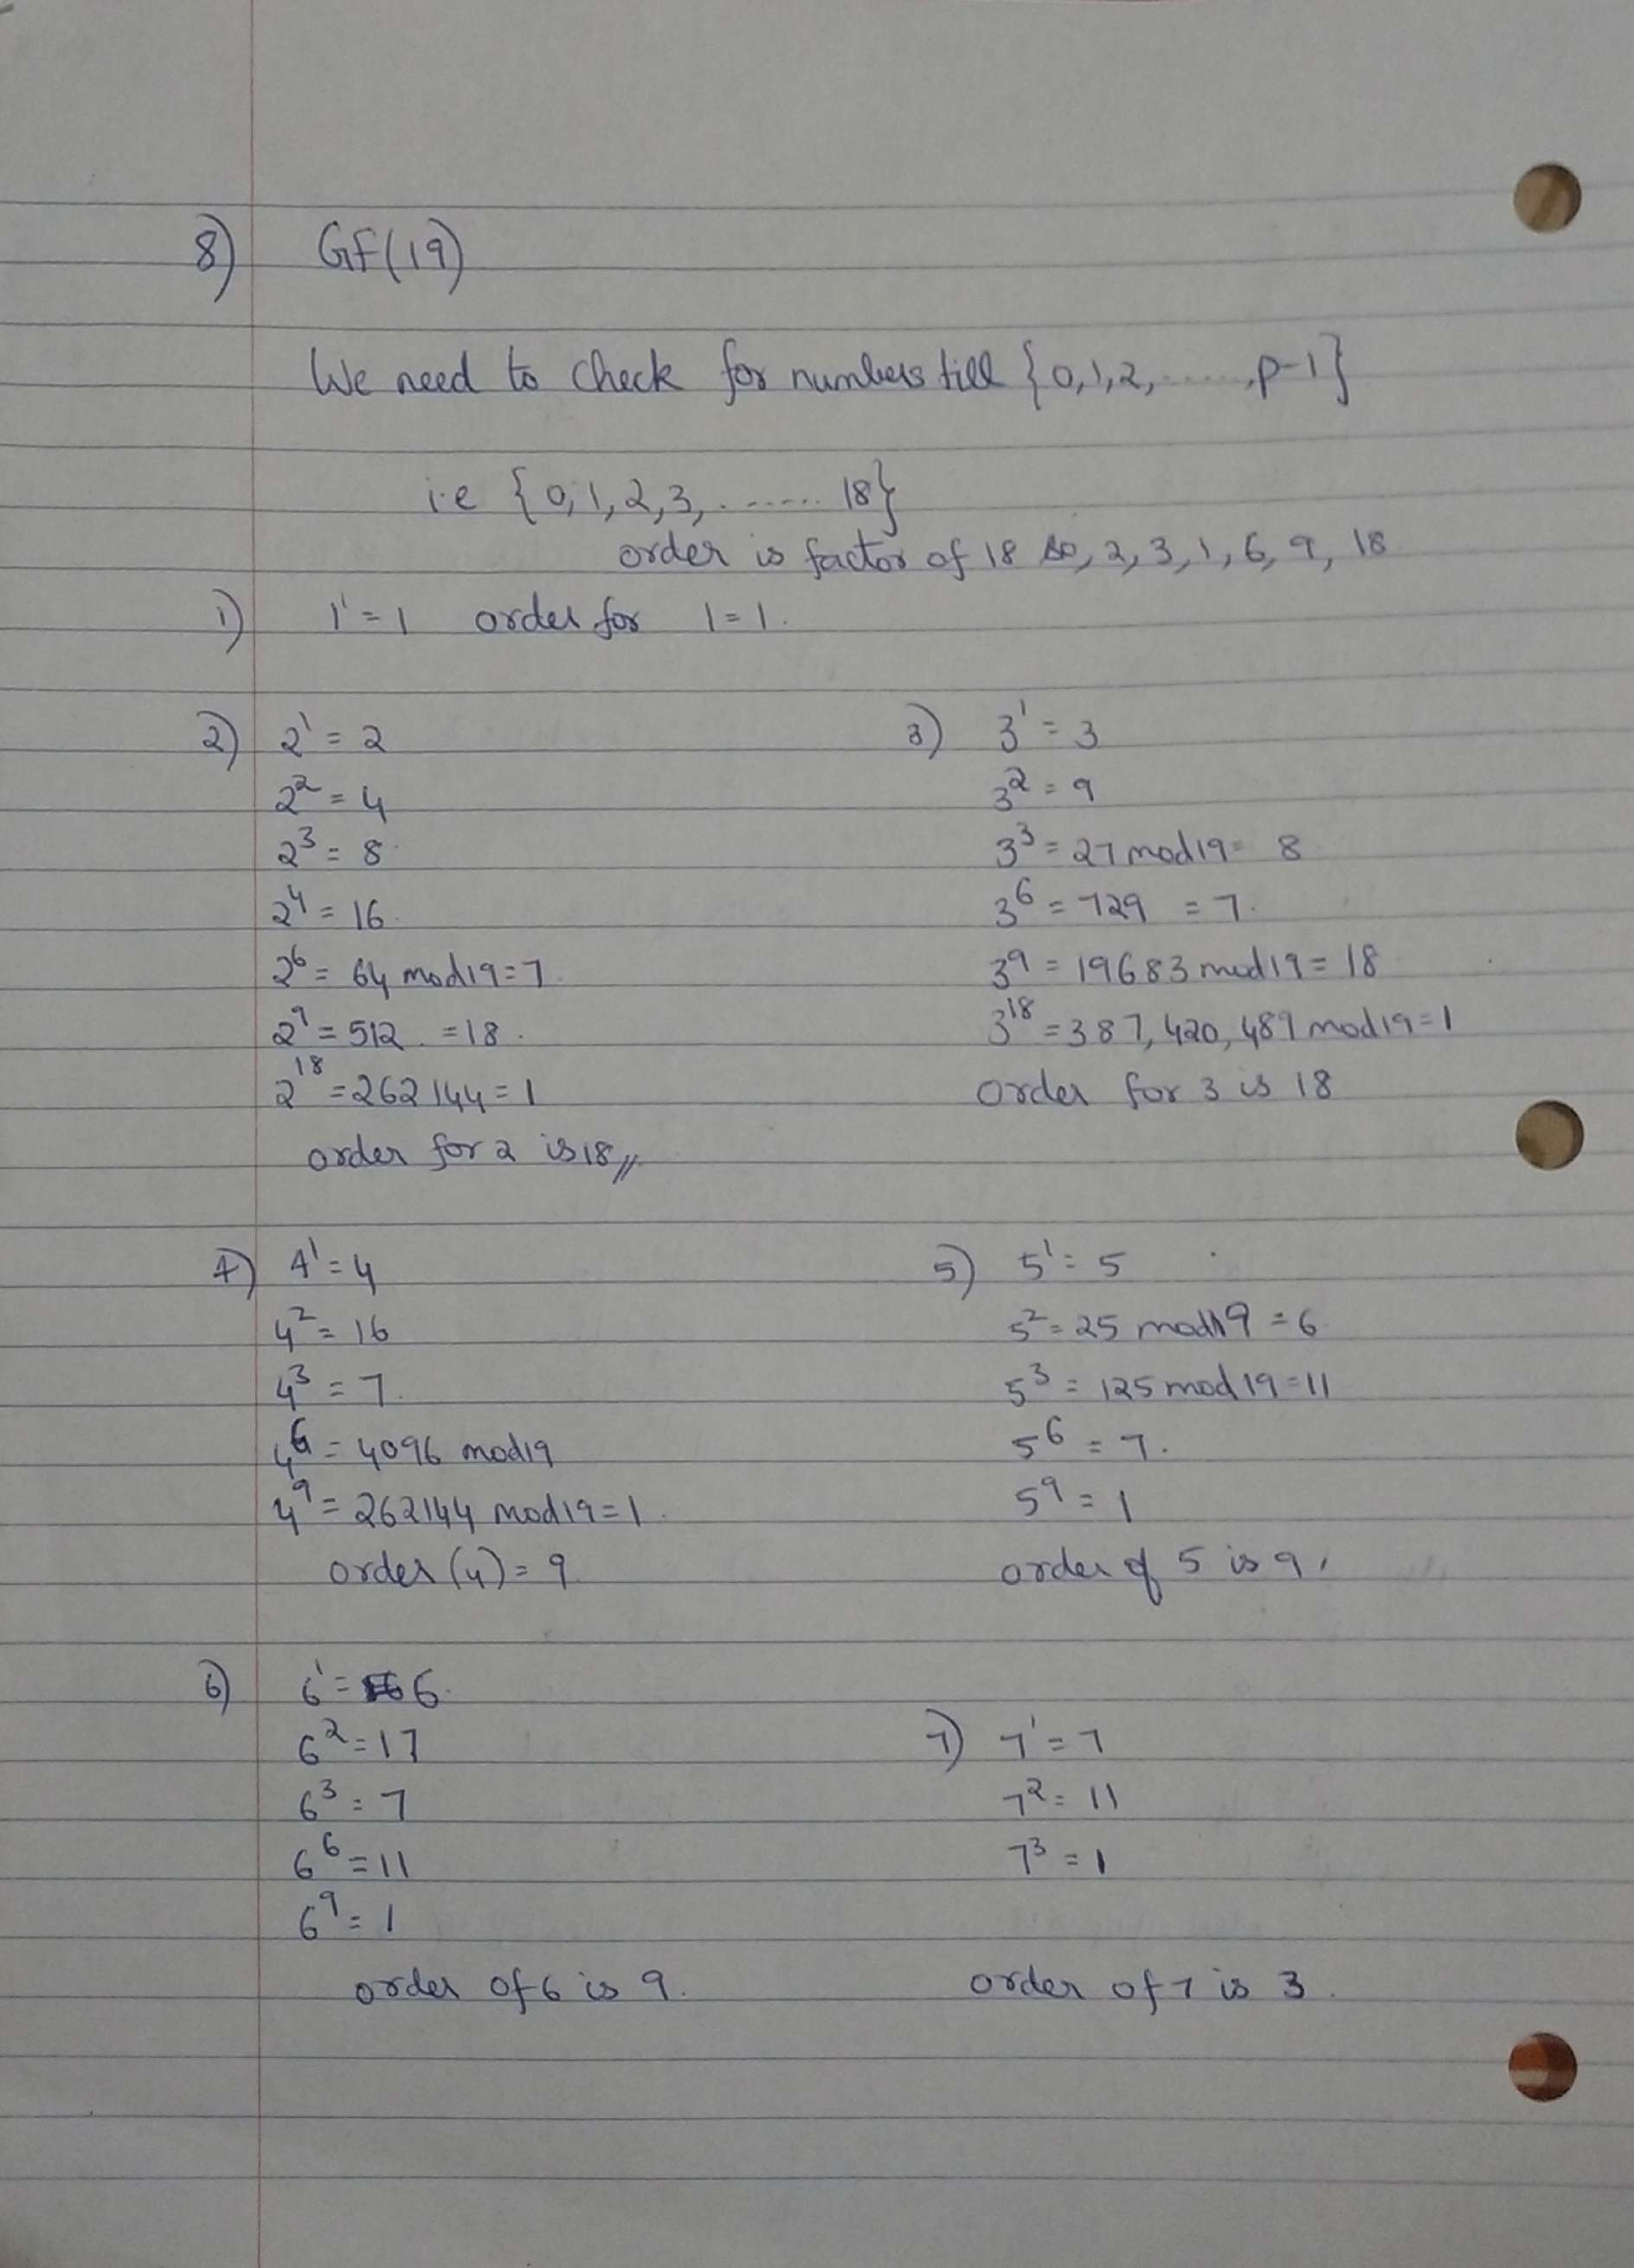 8) GF(19)
We need to check for numbers till {0,1,2,......,p-1}
i.e {0,1,2,3,....... 18}
order is factor of 18 so, 2, 3, 1, 6, 9, 18
1) 1¹ = 1 order for 1 = 1.
2) 2¹ = 2
2² = 4
2³ = 8
2⁴ = 16
2⁶ = 64 mod19 = 7
2⁹ = 512 = 18.
2¹⁸ = 262144 = 1
order for 2 is 18//
3) 3¹ = 3
3² = 9
3³ = 27 mod19 = 8
3⁶ = 729 = 7.
3⁹ = 19683 mod19 = 18
3¹⁸ = 387,420,489 mod19 = 1
order for 3 is 18
4) 4¹ = 4
4² = 16
4³ = 7.
4⁶ = 4096 mod19
4⁹ = 262144 mod19 = 1.
order (4) = 9
5) 5¹ = 5
5² = 25 mod19 = 6
5³ = 125 mod19 = 11
5⁶ = 7.
5⁹ = 1
order of 5 is 9.
6) 6¹ = 6.
6² = 17
6³ = 7
6⁶ = 11
6⁹ = 1
order of 6 is 9.
7) 7¹ = 7
7² = 11
7³ = 1
order of 7 is 3.